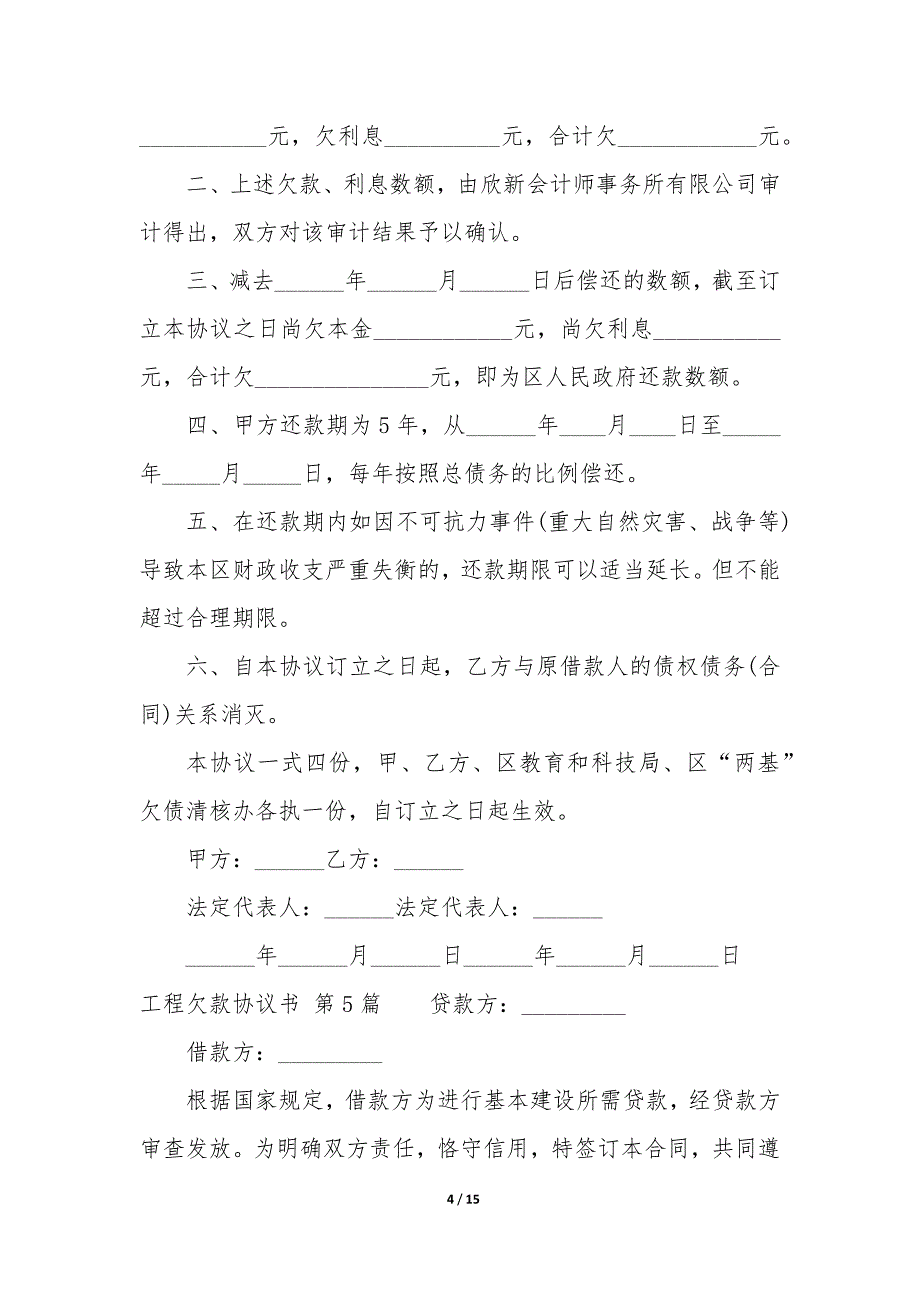 ___________元，欠利息__________元，合计欠____________元。
二、上述欠款、利息数额，由欣新会计师事务所有限公司审
计得出，双方对该审计结果予以确认。
三、减去______年______月______日后偿还的数额，截至订
立本协议之日尚欠本金____________元，尚欠利息___________
元，合计欠_______________元，即为区人民政府还款数额。
四、甲方还款期为5年，从______年____月____日至_____
年_____月_____日，每年按照总债务的比例偿还。
五、在还款期内如因不可抗力事件(重大自然灾害、战争等)
导致本区财政收支严重失衡的，还款期限可以适当延长。但不能
超过合理期限。
六、自本协议订立之日起，乙方与原借款人的债权债务(合
同)关系消灭。
本协议一式四份，甲、乙方、区教育和科技局、区“两基”
欠债清核办各执一份，自订立之日起生效。
甲方：______乙方：______
法定代表人：______法定代表人：______
______年______月______日______年______月______日
工程欠款协议书 第5篇　　贷款方：_________
借款方：_________
根据国家规定，借款方为进行基本建设所需贷款，经贷款方
审查发放。为明确双方责任，恪守信用，特签订本合同，共同遵
4 / 15